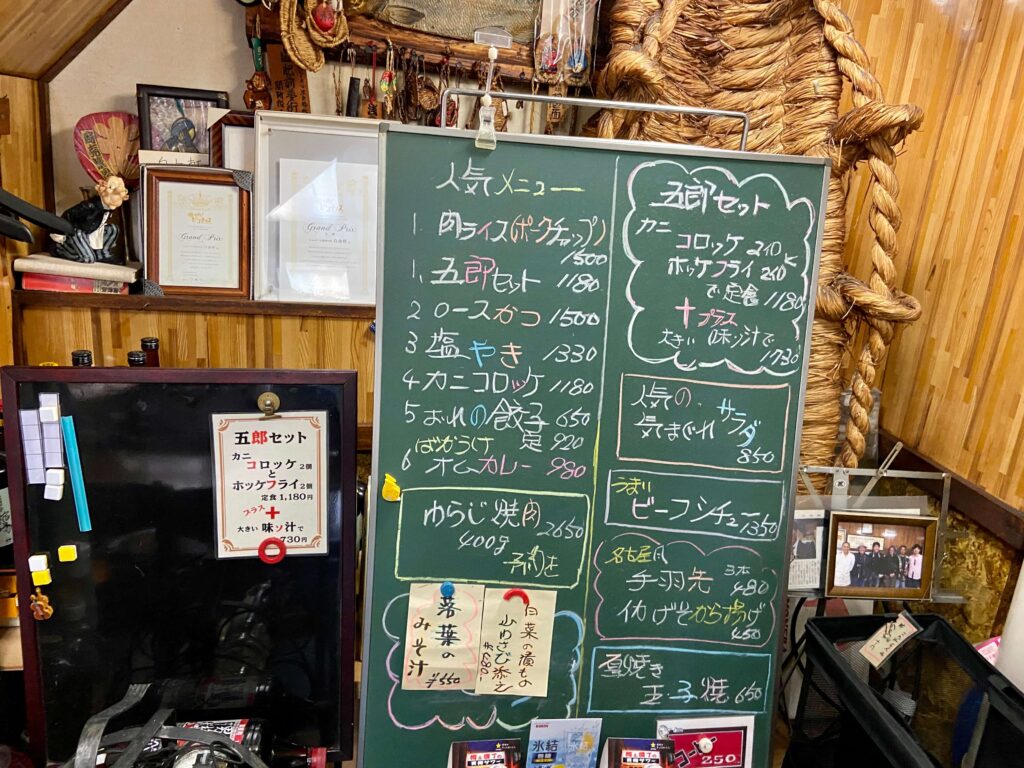 人気メニュー
1. 肉ライス(ポークチャップ)
1500
1. 五郎セット 1180
2 ロースカつ 1500
3 塩やき 1330
4 カニコロッケ 1180
5 おれの餃子 650
定 920
ばかうけ
6 オムカレー 980
ゆらじ焼肉
400g 2650
予約を
落葉の
みそ汁
¥550
白菜の漬もの
山わさび添え
五郎セット
カニ
コロッケ 2コと
ホッケフライ 2コ
で定食 1180
+プラス
大きい 味ソ汁で
1730
人気の
気まぐれ サラダ
850
うまい
ビーフシチュー 1350
名古屋風
手羽先 3本 480
イカげそから揚げ
450
直焼き
玉子焼 650
五郎セット
カニ
コロッケ 2個
と
ホッケフライ 2個
定食 1,180円
プラス +
大きい 味ソ汁で
730円
Grand Prix
KIRIN
氷結
コーヒー
250